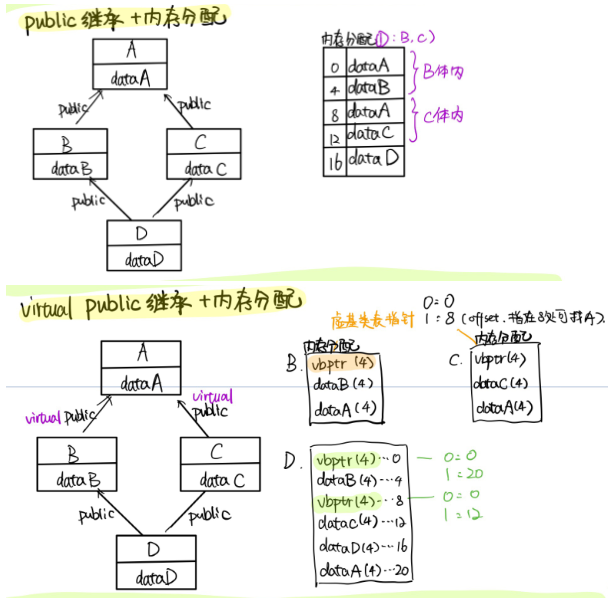 public 继承 + 内存分配
A
dataA
public
public
B
dataB
C
dataC
public
public
D
dataD
内存分配(D: B, C)
0 dataA
4 dataB
8 dataA
12 dataC
16 dataD
B体内
C体内
virtual public 继承 + 内存分配
A
dataA
virtual public
virtual
public
B
dataB
C
dataC
public
public
D
dataD
虚基类表指针
0=0
1=8 (offset. 指在8处可找A)
B.
内存分配
vbptr (4)
dataB (4)
dataA (4)
C.
内存分配
vbptr(4)
dataC(4)
dataA(4)
D.
vbptr(4)…0
dataB(4)…4
vbptr(4)…8
dataC(4)…12
dataD(4)…16
dataA(4)…20
0=0
1=20
0=0
1=12